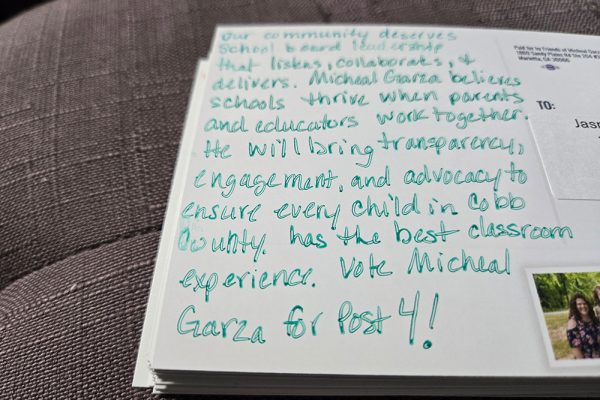 Our community deserves
School board leadership
that listens, collaborates, &
delivers. Micheal Garza believes
schools thrive when parents
and educators work together.
He will bring transparency,
engagement, and advocacy to
ensure every child in Cobb
County has the best classroom
experience. Vote Micheal
Garza for Post 4!
Paid for by Friends of Micheal Garz
Marietta, GA 30066
TO:
Jasm